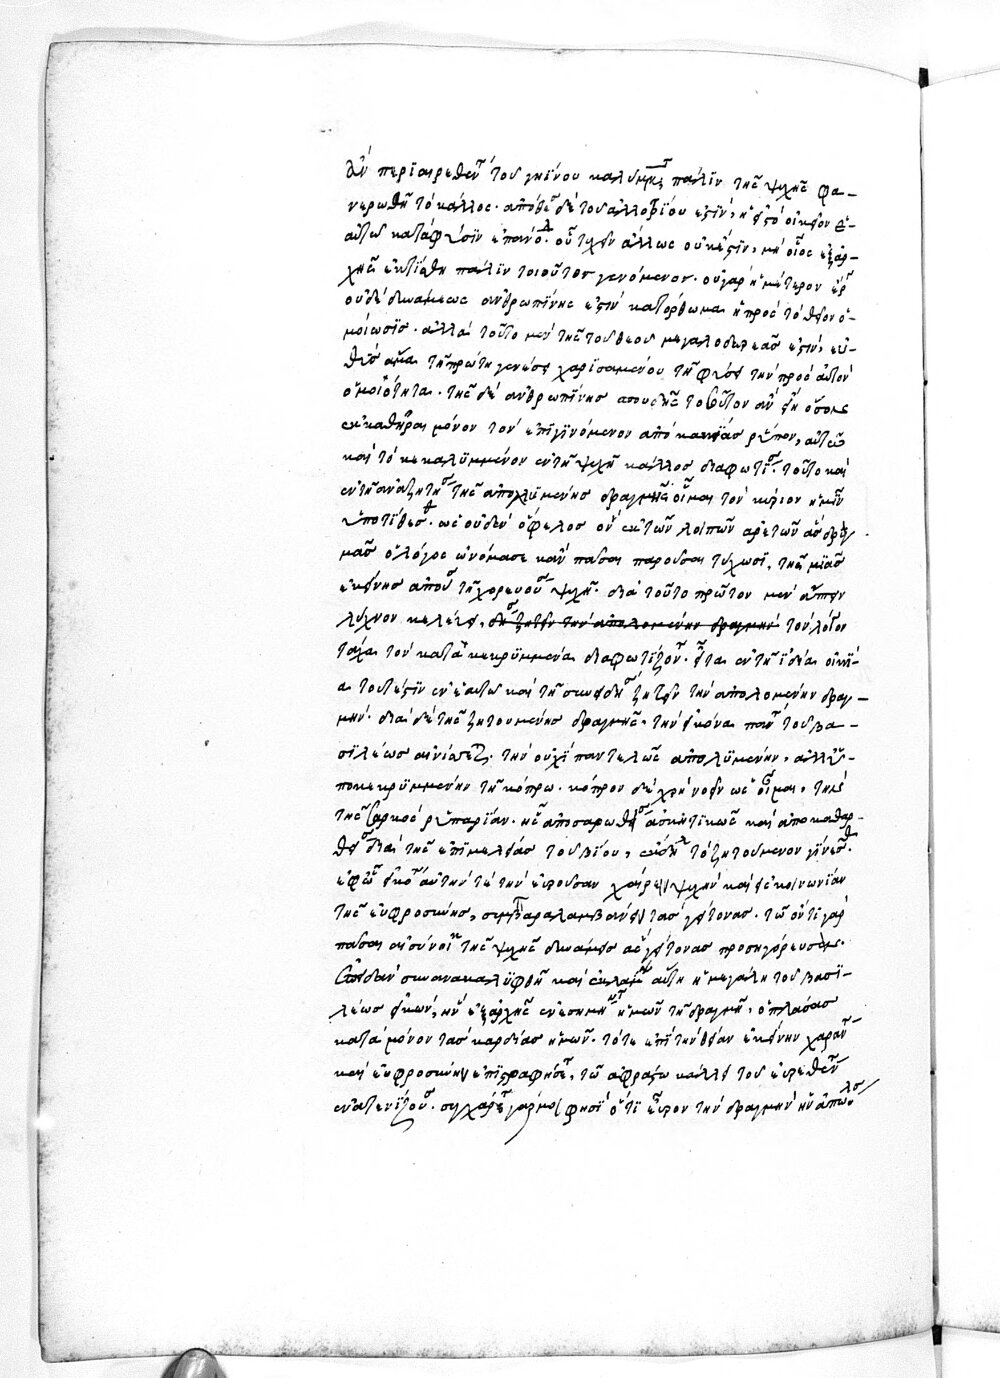 ἂν περϊαιρεθέντ τοῦ γηΐνου καλύμματος, πάλϊν τῆς ψυχῆς φα-
νερωθῆ τὸ κάλλος. ἀπόθεσις δὲ τοῦ ἀλλοτρίου ἐστὶν, ἡ εἰς τὸ οἰκεῖον ἑ-
αυτῶ κατὰ φύσϊν ἐπάνοδος. οὗ τυχεῖν ἄλλως οὐκ ἔστϊν, μὴ οἷος ἐξ ἀρ-
χῆς ἐκτίσθη πάλϊν τοιοῦτος γενόμενος. οὐ γὰρ ἡμέτερον ἔργον
οὐδὲ δυνάμεως ἀνθρωπίνης ἐστὶν κατόρθωμα ἡ πρὸς τὸ θεῖον ὁ-
μοίωσϊς. ἀλλὰ τοῦτο μὲν τῆς τοῦ θεοῦ μεγαλοδωρεᾶς ἐστὶν, εὐ-
θὺς ἅμα τῆ πρώτη γενέσει χαρϊσαμένου τῆ φύσει τὴν πρὸς αὐτὸν
ὁμοιότητα. τῆς δὲ ἀνθρωπίνης σπουδῆς τοσοῦτον ἂν εἴη ὅσον
ἐκκαθῆραι μόνον τὸν ἐπιγϊνόμενον ἀπὸ κακίας ρύπον, αὐτῶ
καὶ τὸ κεκαλϋμμένον ἐν τῆ ψυχῆ κάλλος διαφωτίσαι. τοῦτο καὶ
ἐν τῆ ἀναζητήσει τῆς ἀπολλϋμένης δραγμῆς οἶμαι τὸν κύριον ἡμῖν
ὑποτίθεσθαι. ὡς οὐδὲν ὄφελος ὂν ἐκ τῶν λοιπῶν ἀρετῶν ἃς δραγ
μὰς ὁ λόγος ὠνόμασε κἂν πᾶσαι παροῦσαι τύχωσϊ, τῆς μϊᾶς
ἐκείνης ἀπούσης τῆ χηρευούση ψυχῆ. διὰ τοῦτο πρῶτον μὲν ἅπτειν
λύχνον κελεύει, δὴ ζητεῖν τὴν ἀπολομένην δραγμὴν τὸν λόγον
τάχα τὸν κατὰ κεκρυμμένα διαφωτίζοντα. εἶτα ἐν τῆ ϊδία οἰκί-
α τουτέστϊν ἐν ἑαυτῶ καὶ τῆ συνειδήσει ζητεῖν τὴν ἀπολομένην δραγ-
μήν. διὰ δὲ τῆς ζητουμένης δραγμῆς, τὴν εἰκόνα πάντως τοῦ βα-
σϊλέως αἰνίσσεται. τὴν οὐχὶ παντελῶς ἀπολϋμένην, ἀλλ' ὑ-
ποκεκρϋμμένην τῆ κόπρω. κόπρον δὲ χρὴ νοεῖν ὡς οἶμαι, τὴν ἐκ
τῆς σαρκὸς ρυπαρίαν. ἧς ἀποσαρωθείσης ἀσκητικῶς καὶ ἀποκαθαρ-
θείσης διὰ τῆς ἐπϊμελείας τοῦ βίου, ἔκδηλον τὸ ζητούμενον γίνεσθαι.
ἐφ' ᾧ εἰκὸς αὐτήν τε τὴν εὑροῦσαν χαίρειν ψυχὴν καὶ εἰς κοινωνίαν
τῆς εὐφροσύνης, συμπαραλαμβάνειν τὰς γείτονας. τῶ ὄντι γὰρ
πᾶσαι αἱ σύνοικοι τῆς ψυχῆς δυνάμεις ἃς γείτονας προσηγόρευσεν.
ἐπειδὰν συνανακαλυφθῆ καὶ ἐκλάμψη αὕτη ἡ μεγάλη τοῦ βασϊ-
λέως εἰκών, ἣν ἐξ ἀρχῆς ἐνεσημήνατο ἡμῶν τῆ δραγμῆ, ὁ πλάσας
κατὰ μόνον τὰς καρδίας ἡμῶν. τότε ἐπὶ τὴν θείαν ἐκείνην χαρὰν
καὶ εὐφροσύνην ἐπϊστραφήσεται, τῶ ἀφράστω κάλλει τοῦ εὑρεθέντος
ἐνατενίζουσαι. συγχάρητε γάρ μοι φησῒ ὅτϊ εὗρον τὴν δραγμὴν ἣν ἀπώλεσα